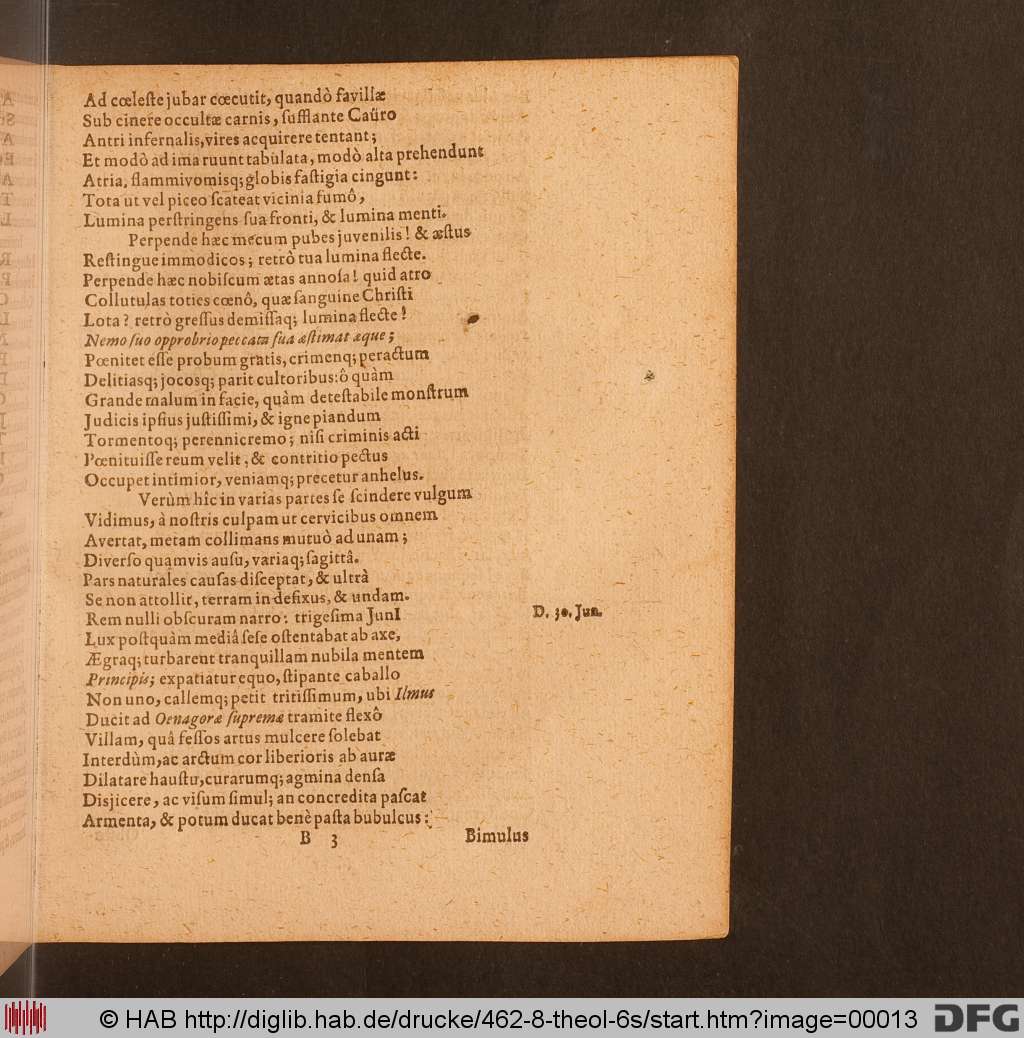 Ad cœleste jubar cœcutit, quandò favillæ
Sub cinere occultæ carnis, sufflante Caüro
Antri infernalis, vires acquirere tentant;
Et modò ad ima ruunt tabulata, modò alta prehendunt
Atria, flammivomisq; globis fastigia cingunt:
Tota ut vel piceo scateat vicinia fumô,
Lumina perstringens sua fronti, & lumina menti.
Perpende hæc mecum pubes juvenilis! & æstus
Restingue immodicos; retrò tua lumina flecte.
Perpende hæc nobiscum ætas annosa! quid atro
Collutulas toties cœnô, quæ sanguine Christi
Lota? retrò gressus demissaq; lumina flecte!
Nemo suo opprobrio peccata sua æstimat æque;
Pœnitet esse probum gratis, crimenq; peractum
Delitiasq; jocosq; parit cultoribus: ô quàm
Grande malum in facie, quàm detestabile monstrum
Judicis ipsius justissimi, & igne piandum
Tormentoq; perennicremo; nisi criminis acti
Pœnituisse reum velit, & contritio pectus
Occupet intimior, veniamq; precetur anhelus.
Verùm hîc in varias partes se scindere vulgum
Vidimus, à nostris culpam ut cervicibus omnem
Avertat, metam collimans mutuò ad unam;
Diverso quamvis ausu, variaq; sagittâ.
Pars naturales causas disceptat, & ultrà
Se non attollit, terram in defixus, & undam.
Rem nulli obscuram narro: trigesima JunI
D. 30. Jun.
Lux postquàm mediâ sese ostentabat ab axe,
Ægraq; turbarent tranquillam nubila mentem
Principis; expatiatur equo, stipante caballo
Non uno, callemq; petit tritissimum, ubi Ilmus
Ducit ad Oenagoræ supremæ tramite flexô
Villam, quâ fessos artus mulcere solebat
Interdùm, ac arctum cor liberioris ab auræ
Dilatare haustu, curarumq; agmina densa
Disjicere, ac visum simul; an concredita pascat
Armenta, & potum ducat benè pasta bubulcus:
B 3 Bimulus
© HAB http://diglib.hab.de/drucke/462-8-theol-6s/start.htm?image=00013 DFG